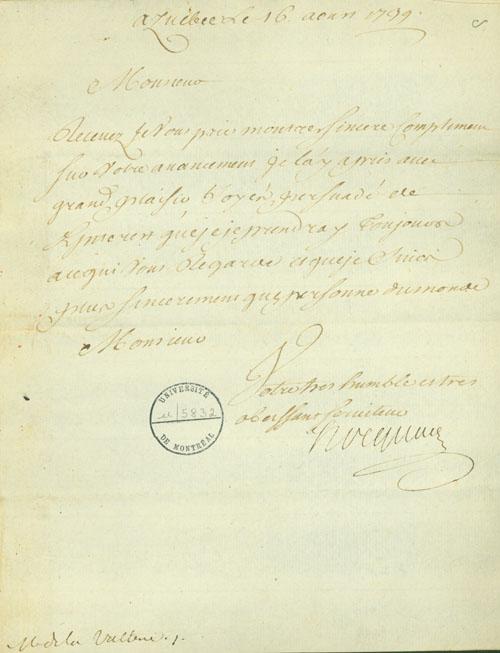 a Quebec Le 16 aoust 1739.
Monsieur
Recevez Je Vous prie mon tres sincere Compliment
sur Votre avancement je l'ay apris avec
grand plaisir soyés persuadé de
L'interest que je prendray Toujours
a ce qui Vous Regarde et que je suis
plus sincerement que personne du monde
Monsieur
Votre tres humble et tres
obeissant serviteur
hocquart
UNIVERSITÉ
5832
DE MONTRÉAL
M. de la